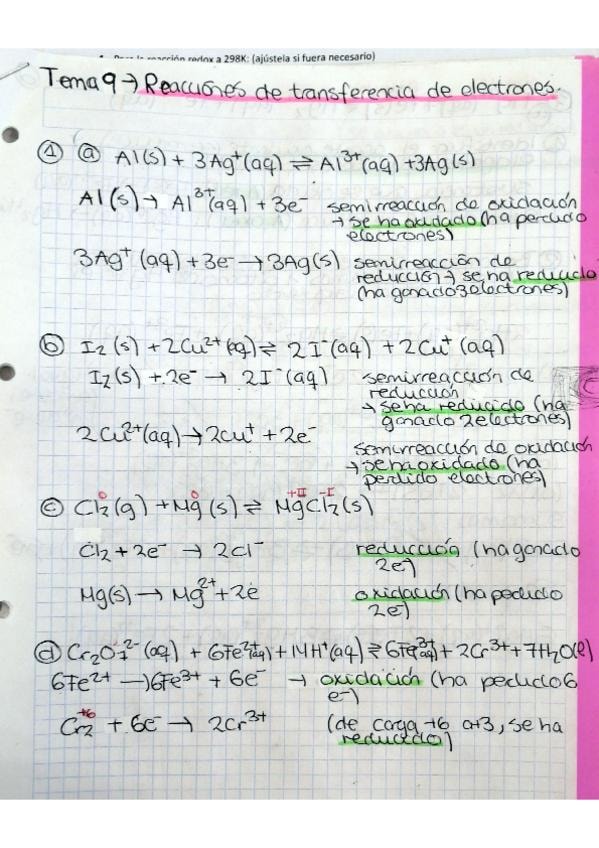 reacción redox a 298K: (ajústela si fuera necesario)
Tema 9 → Reacciones de transferencia de electrones.
① ⓐ Al(s) + 3Ag⁺(aq) ⇌ Al³⁺(aq) + 3Ag(s)
Al(s) → Al³⁺(aq) + 3e⁻ semirreacción de oxidación
→ se ha oxidado (ha perdido
electrones)
3Ag⁺ (aq) + 3e⁻ → 3Ag(s) semirreacción de
reducción → se ha reducido
(ha ganado 3 electrones)
ⓑ I₂ (s) + 2Cu²⁺(aq) ⇌ 2I⁻(aq) + 2Cu⁺ (aq)
I₂(s) + 2e⁻ → 2I⁻(aq) semirreacción de
reducción
→ se ha reducido (ha
ganado 2 electrones)
2Cu²⁺(aq) → 2cu⁺ + 2e⁻
semirreacción de oxidación
→ se ha oxidado (ha
perdido electrones)
0 0 +II -I
ⓒ Cl₂(g) + Mg(s) ⇌ MgCl₂(s)
Cl₂ + 2e⁻ → 2Cl⁻ reducción (ha ganado
2e⁻)
Mg(s) → Mg²⁺ + 2e⁻ oxidación (ha perdido
2e⁻)
ⓓ Cr₂O₇²⁻(aq) + 6Fe²⁺(aq) + 14H⁺(aq) ⇌ 6Fe³⁺(aq) + 2Cr³⁺ + 7H₂O(l)
6Fe²⁺ → 6Fe³⁺ + 6e⁻ → oxidación (ha perdido 6
e⁻)
+6
Cr₂ + 6e⁻ → 2Cr³⁺ (de carga +6 a +3, se ha
reducido)